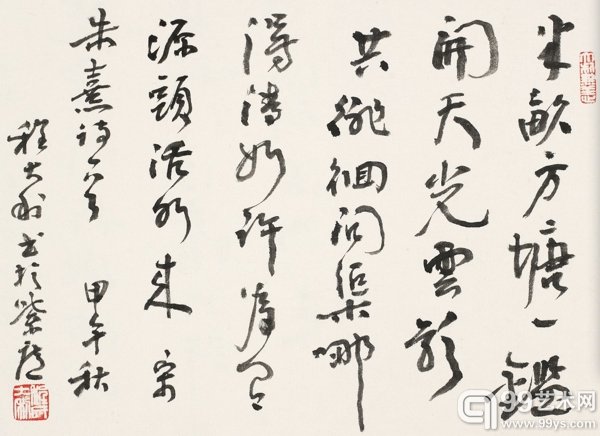 半畝方塘一鑑
開天光雲影
共徘徊問渠哪
得清如許為有
源頭活水來 宋
朱熹詩一首 甲午秋
程大利書於紫廬
99艺术网
www.99ys.com